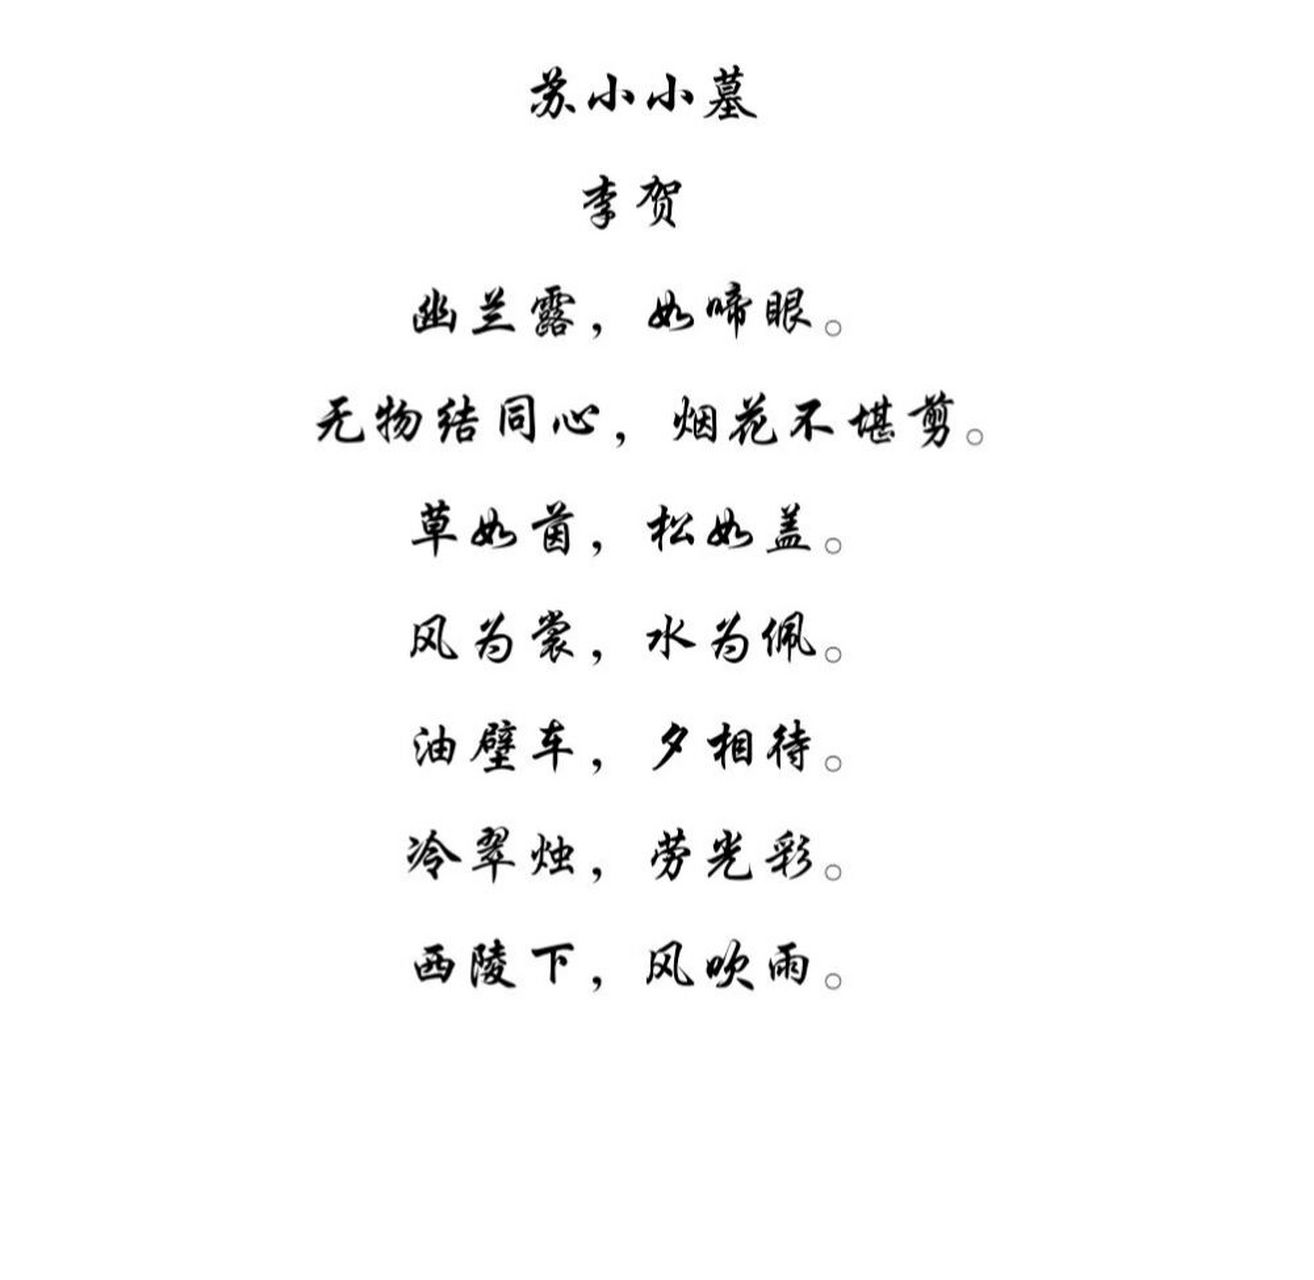 苏小小墓
李贺
幽兰露，如啼眼。
无物结同心，烟花不堪剪。
草如茵，松如盖。
风为裳，水为佩。
油壁车，夕相待。
冷翠烛，劳光彩。
西陵下，风吹雨。